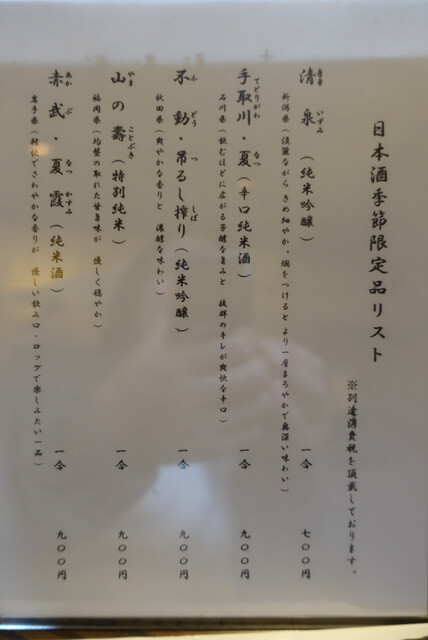 日本酒季節限定品リスト
※別途消費税を頂戴しております。
清泉(純米吟醸) 一合 七〇〇円
きよ いずみ
新潟県(淡麗ながらきめ細やか。燗をつけるとより一層まろやかで奥深い味わい)
手取川・夏(辛口純米酒) 一合 九〇〇円
てどりがわ なつ
石川県(飲むほどに広がる芳醇な旨みと 抜群のキレが爽快な辛口)
不動・吊るし搾り(純米吟醸) 一合 九〇〇円
ふ どう つ しぼ
秋田県(爽やかな香りと 濃醇な味わい)
山の壽(特別純米) 一合 九〇〇円
やま ことぶき
福岡県(均整の取れた甘旨味が 優しく穏やか)
赤武・夏霞(純米酒) 一合 九〇〇円
あか ぶ なつ かすみ
岩手県(軽快でさわやかな香りが 優しい飲み口・ロックで楽しみたい一品)